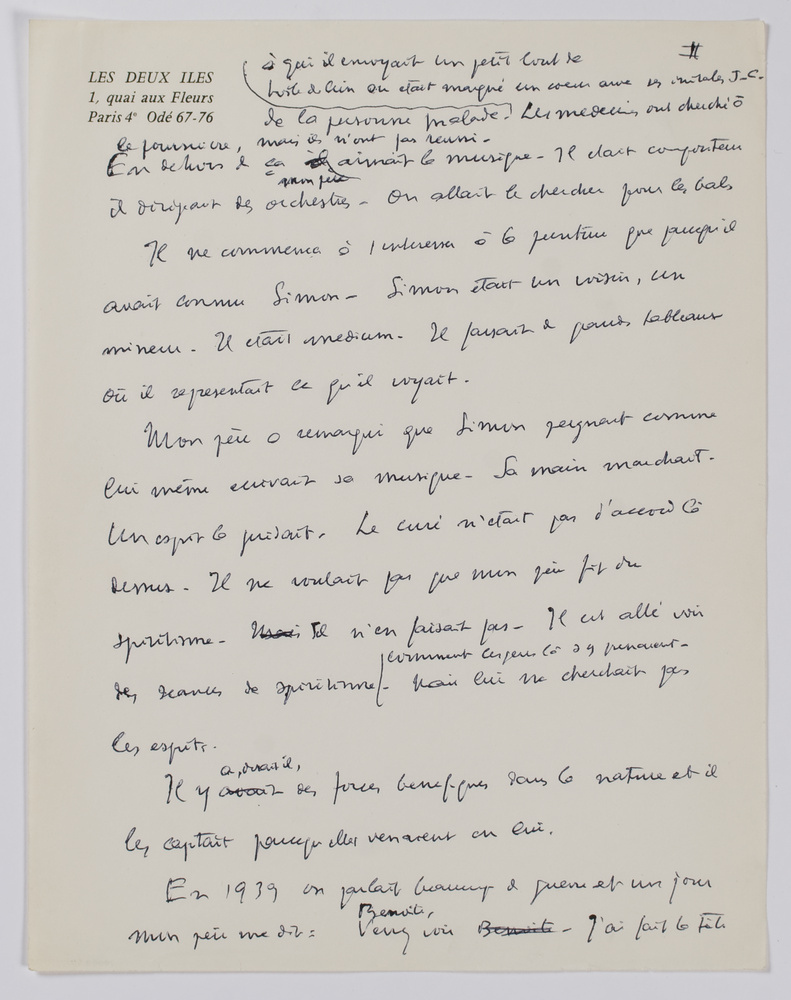 LES DEUX ILES
1, quai aux Fleurs
Paris 4e Odé 67-76
II
à qui il envoyait un petit bout de
toile de lin où était marqué un coeur avec les initiales J-C.
de la personne malade. Les medecins ont cherché à
le poursuivre, mais ils n'ont pas reussi-
En dehors de ça il aimait la musique - Il etait compositeur
mon père
il dirigeait des orchestres - On allait le chercher pour les bals
Il ne commença à s'interesser à la peinture que parcequ'il
avait connu Simon - Simon etait un voisin, un
mineur - Il etait medium. Il faisait de grands tableaux
où il representait ce qu'il voyait.
Mon père a remarqué que Simon peignait comme
lui même ecrivait sa musique - Sa main marchait.
Un esprit le guidait. Le curé n'etait pas d'accord là
dessus - Il ne voulait pas que mon père fit du
spiritisme - Mais Il n'en faisait pas - Il est allé voir
comment ces gens là s'y prenaient -
des seances de spiritisme - Mais lui ne cherchait pas
les esprits.
a, disait il,
Il y avait des forces benefiques dans la nature et il
les captait parcequ'elles venaient en lui.
En 1939 on parlait beaucoup de guerre et un jour
Benoite,
mon père me dit : Venez voir Benoite - J'ai fait la tête